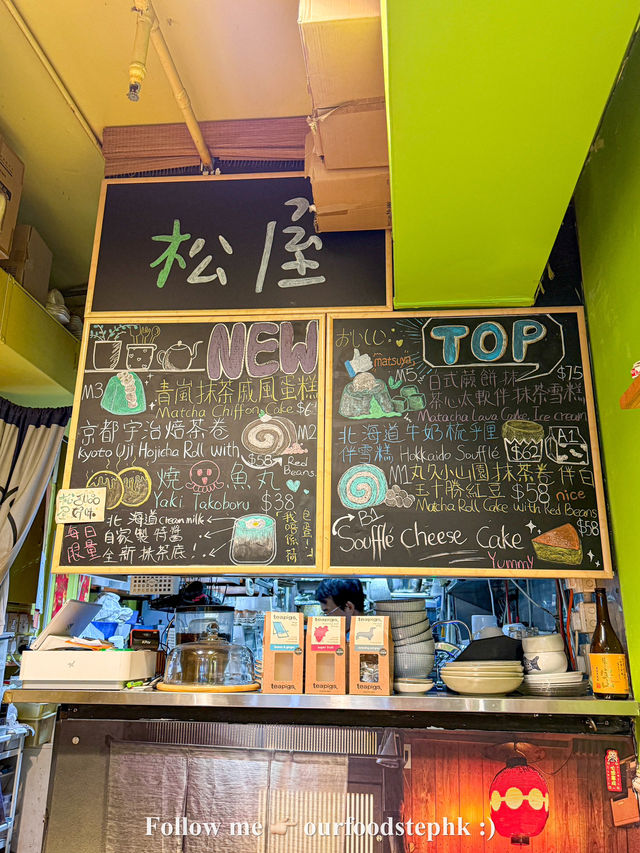 松屋
NEW
M3
青嵐抹茶戚風蛋糕
Matcha Chiffon Cake $6
京都宇治焙茶卷
Kyoto Uji Hojicha Roll with
M2
$58
Red Beans.
燒魚丸
Yaki Takoboru $38
每日限量
北海道Cream milk
自家製特醬
全新抹茶底!
TOP
おいしい
matsuya
M5
$75
日式蕨餅抹
茶心太軟件抹茶雪糕
Matacha Lava Cake, Ice cream
北海道牛奶梳乎里
伴雪糕 Hokkaido Soufflé
$62
A1
M1 丸久小山園抹茶卷伴白
玉十勝紅豆 $58 nice
Matcha Roll Cake with Red Beans
B1
$58
Soufflé Cheese Cake
Yummy
teapigs.
teapigs.
teapigs.
Follow me ourfoodstephk :)